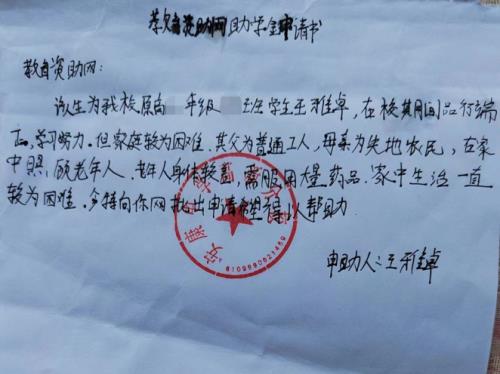 教育资助网助学金申请书
教育资助网:
该生为我校原高 年级 班学生王雅卓,在校其间品行端
正,学习努力。但家庭较为困难,其父为普通工人,母亲为失地农民,在家
中照顾老年人,老年人身体较差,需服用大量药品。家中生活一直
较为困难。今特向你网批出申请希望得以帮助.
申助人:王雅卓
6109990021459